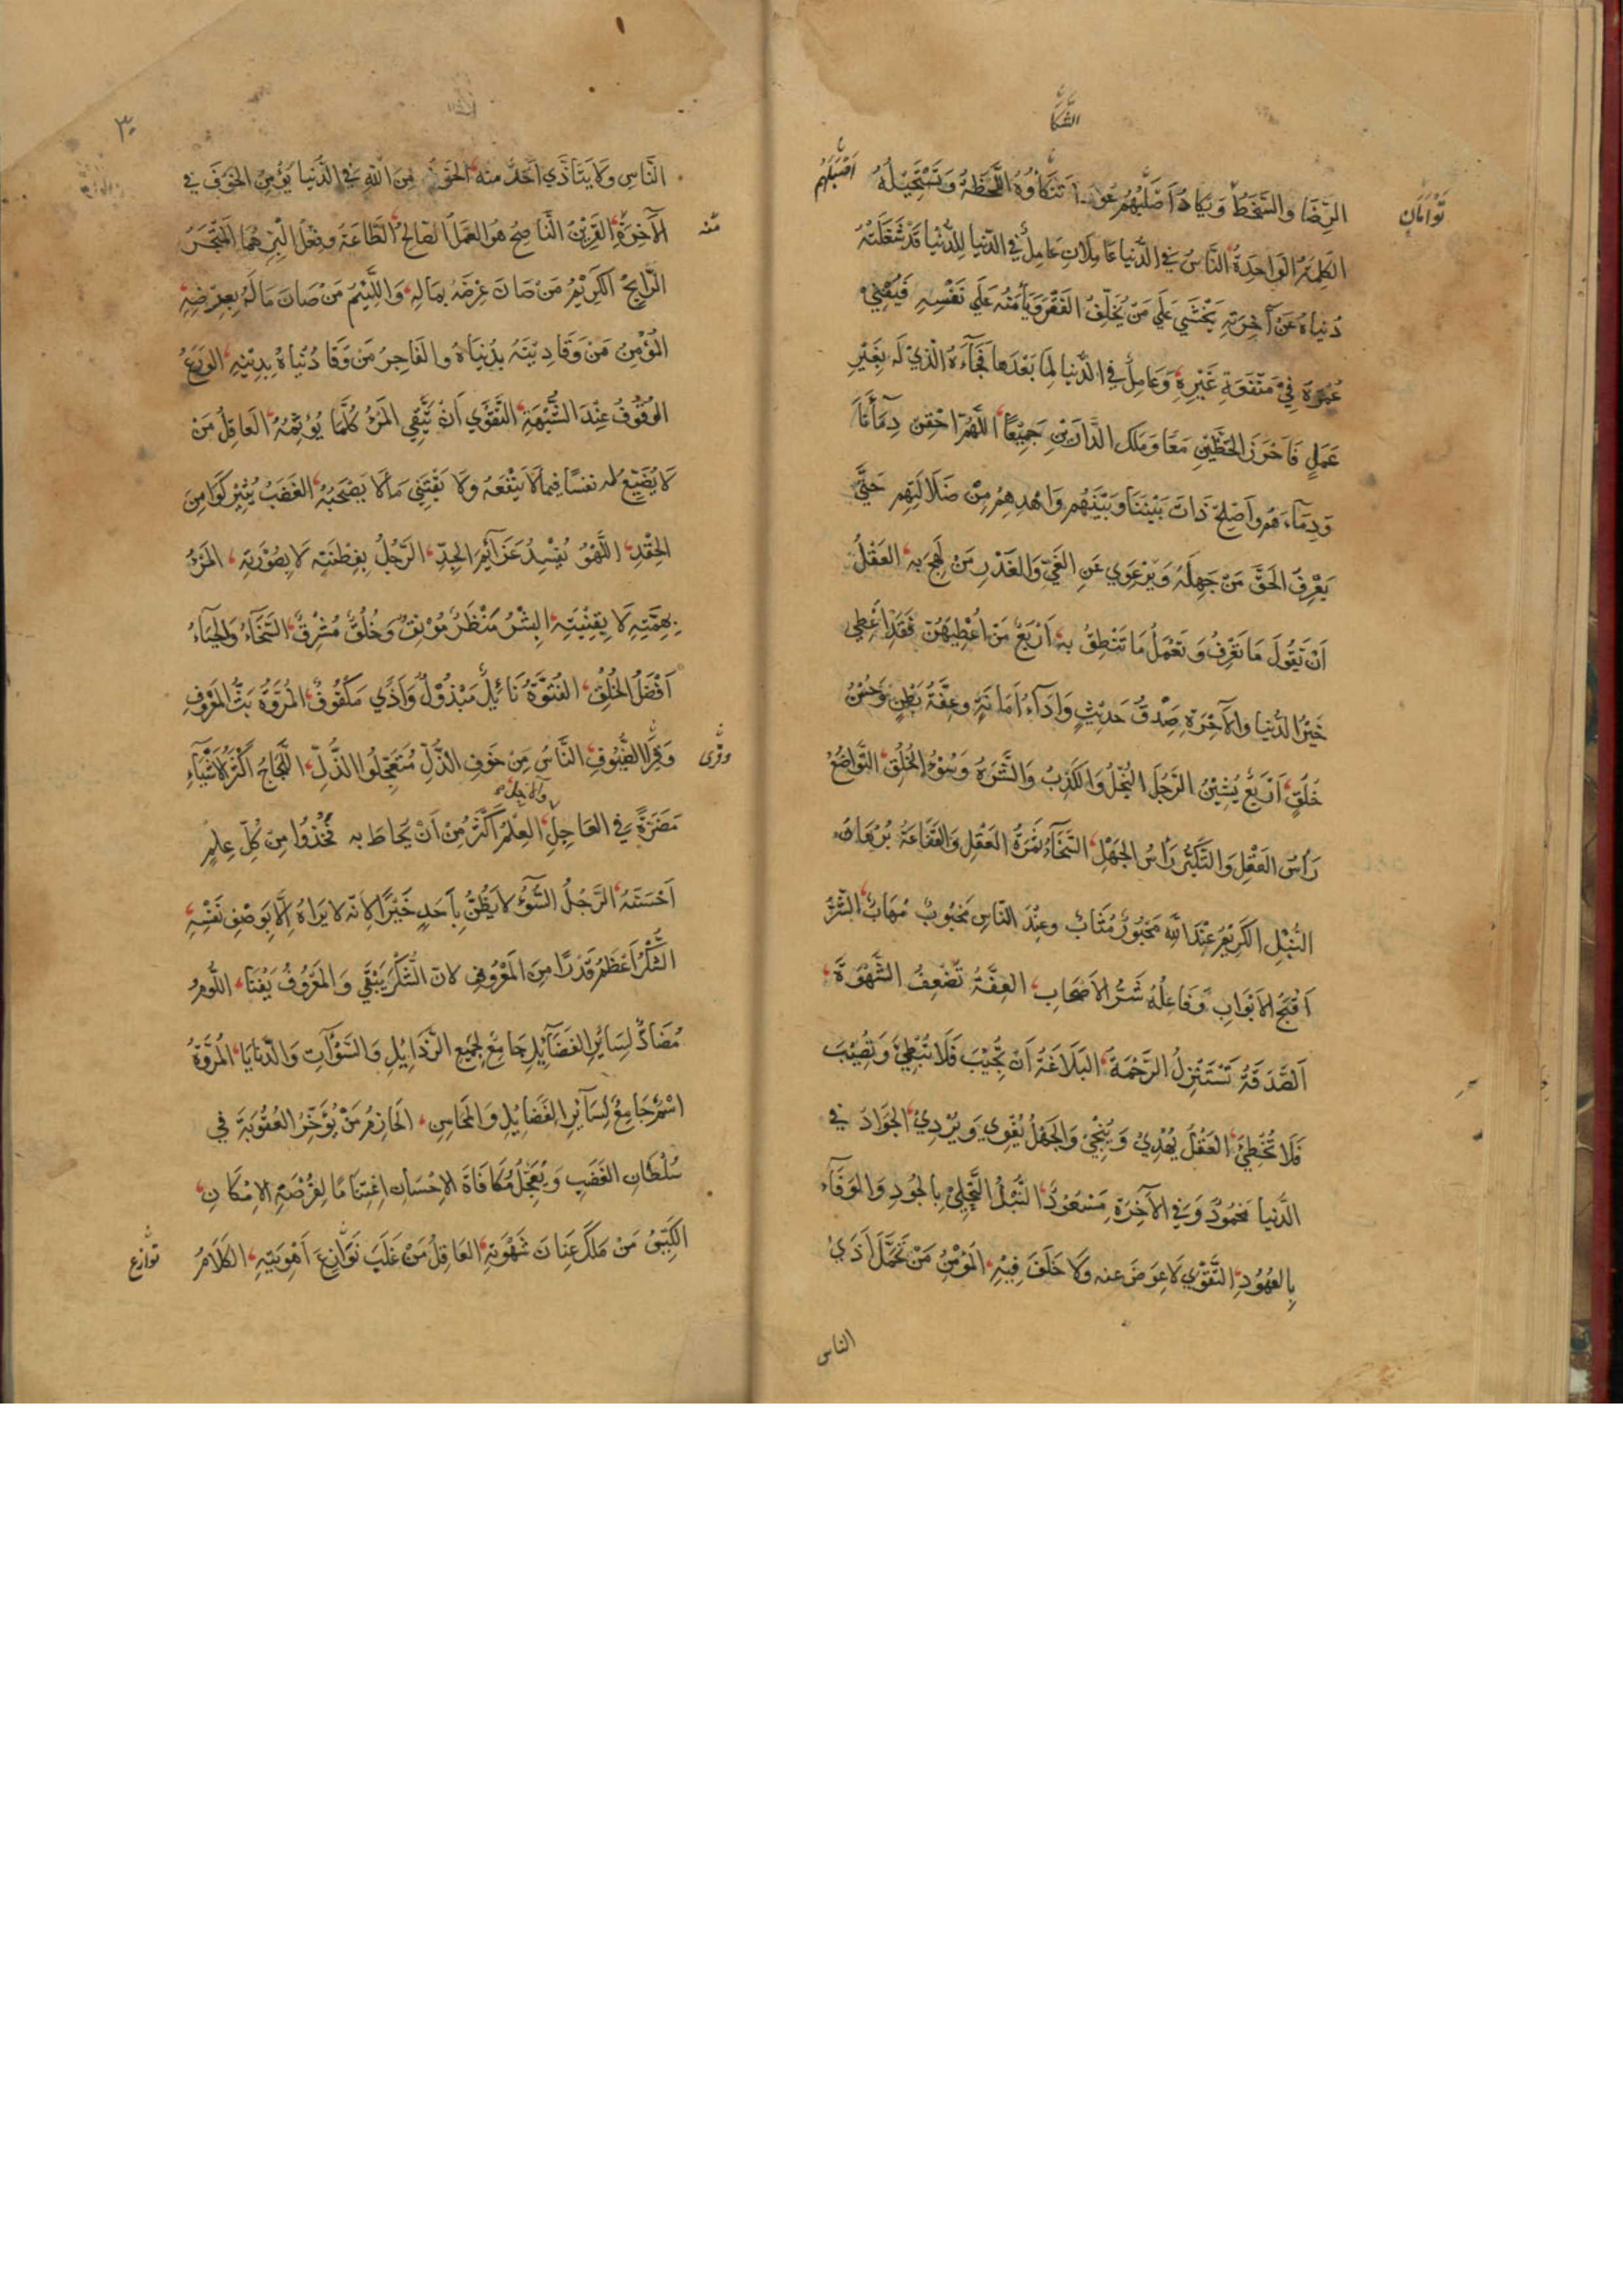 الشكا
الرِّضَا والسَّخَطُ وَيَكادُ أَصْلَبُهُم عُودًا تَنْكَاؤُهُ اللَّحْظَةُ وَتَسْتَحِيلُهُ
أَصْلَبُهُم
تَوْأمَان
الكَلِمَةُ الوَاحِدَةُ النَّاسُ فِي الدُّنيا عَامِلَانِ عَامِلٌ في الدّنيا لِلدُّنْيا قَدْ شَغَلَتْهُ
دُنياهُ عَنْ آخِرَتِهِ يَخْشَي عَلَي مَنْ يُخَلِّفُ الفَقْرَ وَيَأمَنُهُ عَلَي نَفْسِهِ فَيُفْنِي
عُمُرَهُ فِيْ مَنْفَعَةِ غَيْرِهِ وَعَامِلٌ فِي الدُّنيا لِمَا بَعْدَهَا فَجَآءَهُ الَّذِيْ لَهُ بِغَيْرِ
عَمَلٍ فَاَحْرَزَ الحَظَّيْنِ مَعًا وَمَلَكَ الدَّارَيْنِ جَمِيْعًا اللَّهُمَّ احْقِنْ دِمَآئَنَا
وَدِمَآءَهُم وأَصْلِحْ ذَاتَ بَيْنِنَا وَبَيْنِهُم وَاهْدِهِمُ مِنْ ضَلَالَتِهِم حَتَّي
يَعْرِفَ الحَقَّ مَنْ جَهِلَهُ وَيَرْعَوِي عَنِ الغَيِّ وَالغَدْرِ مَنْ لَهِجَ بِهِ العَقْلُ
اَنْ تَقُولَ مَا تَعْرِفُ وَتَعْمَلُ مَا تَنْطِقُ بِهِ اَرْبَعٌ مَنْ اُعْطِيَهُنَّ فَقَدْ اُعْطِي
خَيْرَ الدُّنيا والآخِرَةِ صِدْقُ حَدِيْثٍ وَاَدَآءُ اَمَانَةٍ وعِفَّةُ بَطْنٍ وَحُسْنُ
خُلُقٍ اَرْبَعٌ يُشِيْنُ الرَّجُلَ البُخْلُ وَالكَذِبُ وَالشَّرَهُ وَسُوْءُ الخُلُقِ التَّوَاضُعُ
رَأسُ العَقْلِ وَالتَّكَبُّرُ رَأْسُ الجَهْلِ السَّخَآءُ ثَمَرَةُ العَقْلِ وَالقَنَاعَةُ بُرْهَانُ
النُّبْلِ الكَرِيْمُ عِنْدَ اللّٰهِ مَحْبُورٌ مُثَابٌ وعِنْدَ النَّاسِ مَحْبُوبٌ مُهَابٌ الشَّرُّ
اَقْبَحُ الاَبْوَابِ وَفَاعِلُهُ شَرُّ الاَصْحَابِ العِفَّةُ تُضْعِفُ الشَّهْوَةَ
اَلصَّدَقَةُ تَسْتَنْزِلُ الرَّحْمَةَ البَلَاغَةُ اَنْ تُجِيْبَ فَلَا تُبْطِئَ وَتُصِيْبَ
فَلَا تُخْطِئَ العَقْلُ يَهْدِيْ وَيُنْجِيْ وَالجَهْلُ يُغْوِي وَيُرْدِيْ الجَوَادُ فِي
الدُّنيا مَحْمُودٌ وَفِي الآخِرَةِ مَسْعُوْدٌ النُّبْلُ التَّحَلِّيْ بِالجُودِ وَالوَفَآء
بِالعُهُودِ التَّقْوَي لَا عِوَضَ عنه وَلَا خَلَفَ فِيْهِ المُؤْمِنُ مَنْ تَحَمَّلَ اَذَي
الناس
٣٠
النَّاسِ وَلَا يَتَاَذَّي اَحَدٌ مِنْهُ الخَوْفُ مِنَ اللّٰهِ فِي الدُّنيا يُؤْمِنُ الخَوْفَ فِي
الآخِرَةِ القَرِيْنُ النَّاصِحُ هُوَ العَمَلُ الصَّالِحُ الطَّاعَةُ وفِعْلُ البِرِّ هُمَا المَتْجَرُ
مِنْهُ
الرَّابِحُ الكَرِيْمُ مَنْ صَانَ عِرْضَهُ بِمَالِهِ وَاللَّئِيْمُ مَنْ صَانَ مَالَهُ بِعِرْضِهِ
المُؤْمِنُ مَنْ وَقَا دِيْنَهُ بِدُنيَاهُ والفَاجِرُ مَنْ وَقَا دُنْيَاهُ بِدِيْنِهِ الوَرَعُ
الوُقُوْفُ عِنْدَ الشُّبْهَةِ التَّقْوَي اَنْ يَتَّقِي المَرْءُ كُلَّمَا يُؤثِمُهُ العَاقِلُ مَنْ
لَا يُضَيِّعُ له نفسًا فِيمَا لَا يَنْفَعُهُ وَلَا يَقْتَنِي مَا لَا يَصْحَبُهُ الغَضَبُ يُثِيْرُ كَوَامِنَ
الحِقْدِ اللَّهْوُ يُفْسِدُ عَزَآئِمَ الجِدِّ الرَّجُلُ بِفِطْنَتِهِ لَا بِصُوْرَتِهِ المَرْءُ
بِهِمَّتِهِ لَا بِقِنْيَتِهِ البِشْرُ مَنْظَرٌ مُوْنِقٌ وَخُلُقٌ مُشْرِقٌ السَّخَآءُ وَالحَيَآءُ
اَفْضَلُ الخُلُقِ الفُتُوَّةُ نَائِلٌ مَبْذُوْلٌ وَاَذًي مَكْفُوفٌ المُرُوَّةُ بَثُّ المَعْرُوفِ
وَقِرَا الضُّيُوفِ النَّاسُ مِنْ خَوْفِ الذُّلِّ مُتَعَجِّلُوا الذُّلِّ اللَّجَاجُ اَكْثَرُ الاَشْيَآءِ
وقِرَى
مَضَرَّةً فِي العَاجِلِ العِلْمُ اَكْثَرُ مِنْ اَنْ يُحَاطَ بِه فَخُذُوا مِنْ كُلِّ عِلْمٍ
والآجل
اَحْسَنَهُ الرَّجُلُ السُّوْءُ لَا يَظُنُّ بِاَحَدٍ خَيْرًا لِاَنَّهُ لا يَرَاهُ اِلَّا بِوَصْفِ نَفْسِهِ
الشُّكْرُ اَعْظَمُ قَدْرًا مِنَ المَعْرُوفِ لانّ الشُّكْرَ يَبْقَي وَالمَعْرُوفُ يَفْنَا اللُّومُ
مُضَادٌّ لِسَائِرِ الفَضَآئِلِ جَامِعٌ لِجَمِيْعِ الرَّذَايِلِ وَالسَّوْآتِ وَالدَّنَايَا المُرُوَّةُ
اسْمٌ جَامِعٌ لِسَآئِرِ الفَضَايِلِ وَالمَحَاسِنِ الحَازِمُ مَنْ يُؤَخِّرُ العُقُوْبَةَ فِي
سُلْطَانِ الغَضَبِ وَيُعَجِّلُ مُكَافَاةَ الاِحْسَانِ اغْتِنَامًا لِفُرْصَةِ الاِمْكَانِ
الكَيِّسُ مَنْ مَلَكَ عِنَانَ شَهْوَتِهِ العَاقِلُ مَنْ غَلَبَ نَوَازِعَ اَهْوِيَتِهِ الكَلَامُ
نَوازِع